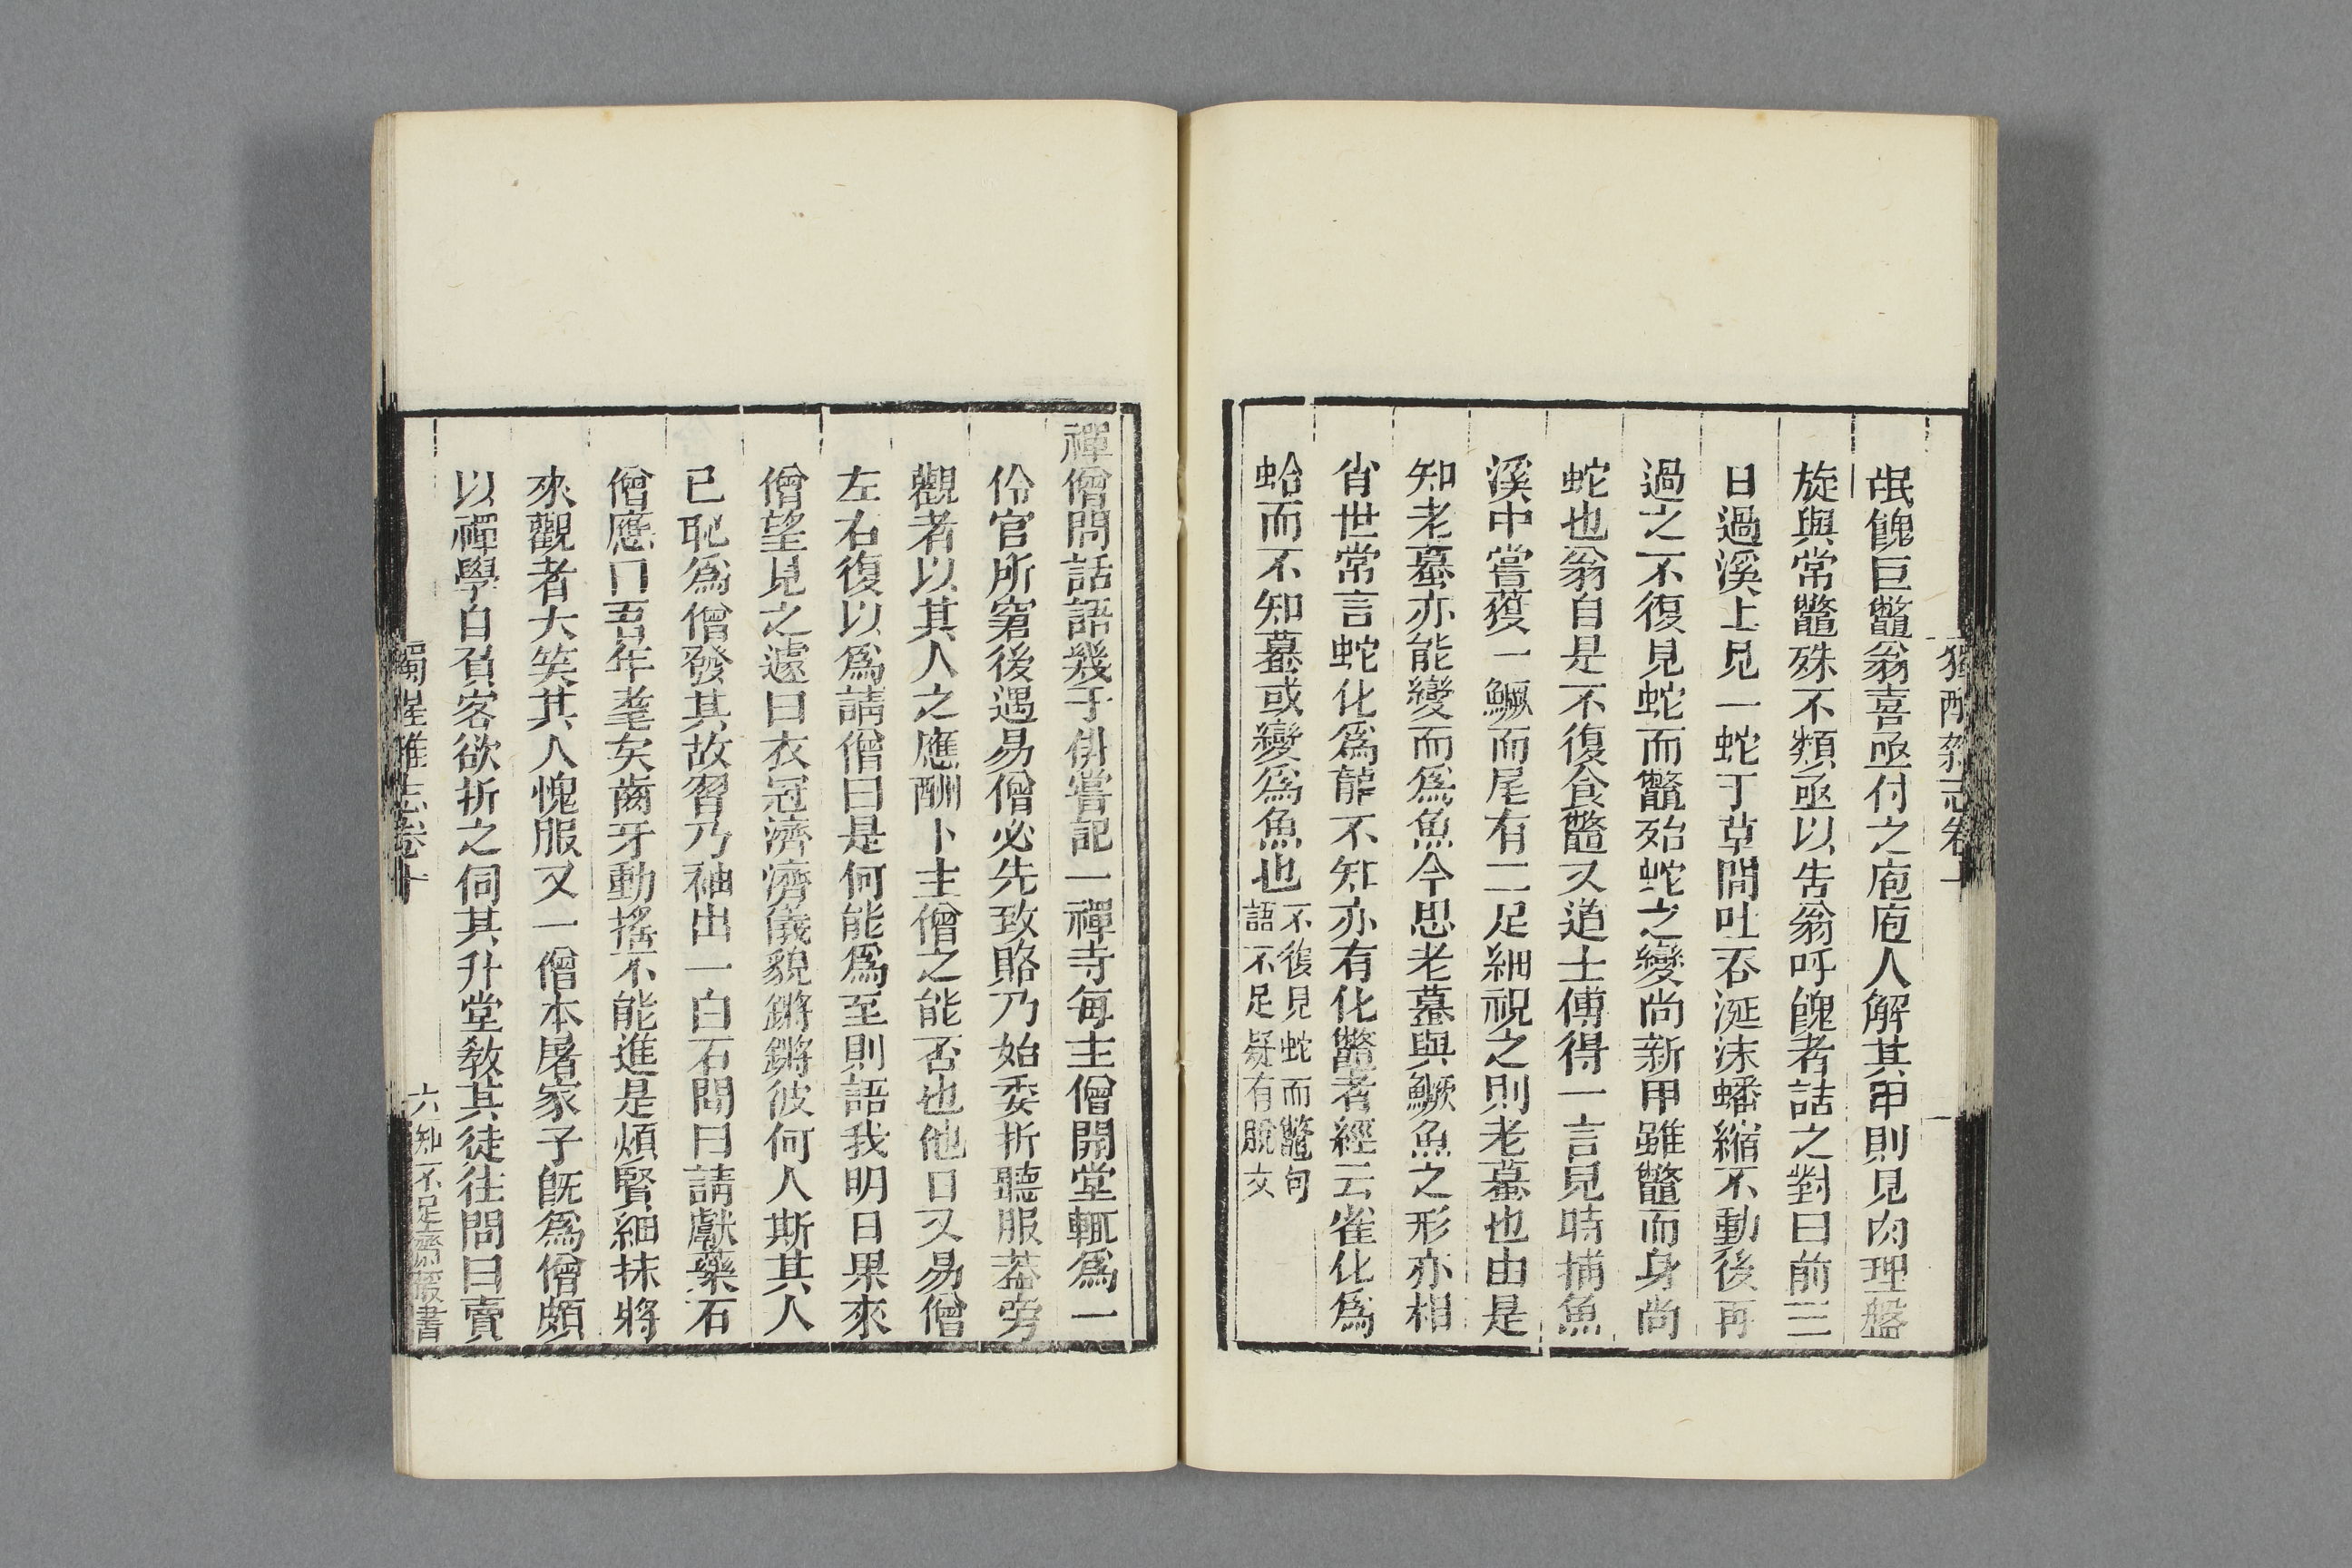 獨醒雜志卷十
氓餽巨鼈翁喜亟付之庖庖人解其甲則見肉理盤
旋與常鼈殊不類亟以告翁呼餽者詰之對曰前三
日過溪上見一蛇于草間吐吞涎沫蟠縮不動後再
過之不復見蛇而鼈殆蛇之變尚新甲雖鼈而身尚
蛇也翁自是不復食鼈又道士傅得一言見時捕魚
溪中嘗獲一鱖而尾有二足細視之則老蟇也由是
知老蟇亦能變而爲魚今思老蟇與鱖魚之形亦相
肖世常言蛇化爲龍不知亦有化鼈者經云雀化爲
蛤而不知蟇或變爲魚也
不復見蛇而鼈句
語不足疑有脫文
禪僧問話語幾于俳嘗記一禪寺每主僧開堂輒爲一
伶官所窘後遇易僧必先致賂乃始委折聽服蓋旁
觀者以其人之應酬卜主僧之能否也他日又易僧
左右復以爲請僧曰是何能爲至則語我明日果來
僧望見之遽曰衣冠濟濟儀貌鏘鏘彼何人斯其人
已恥爲僧發其故習乃袖出一白石問曰請獻藥石
僧應曰吾年耄矣齒牙動搖不能進是煩賢細抹將
來觀者大笑其人愧服又一僧本屠家子旣爲僧頗
以禪學自負客欲折之伺其升堂敎其徒往問曰賣
獨醒雜志卷十
六
知不足齋叢書